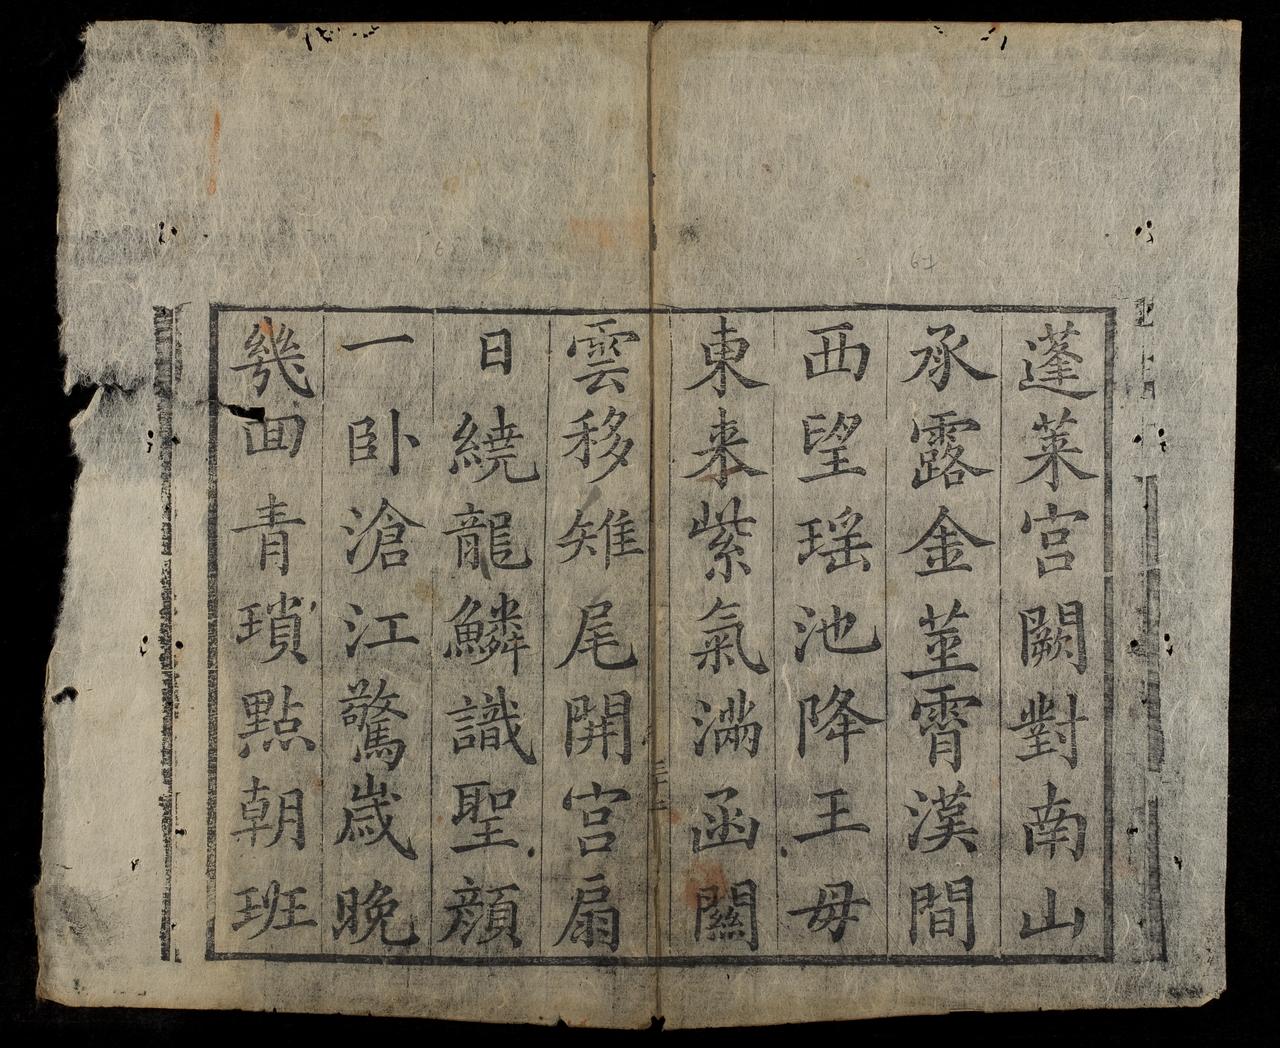 蓬萊宮闕對南山
承露金莖霄漢間
西望瑶池降王母
東来紫氣滿函關
雲移雉尾開宮扇
日繞龍鱗識聖顔
一卧滄江驚歳晚
幾回青瑣點朝班